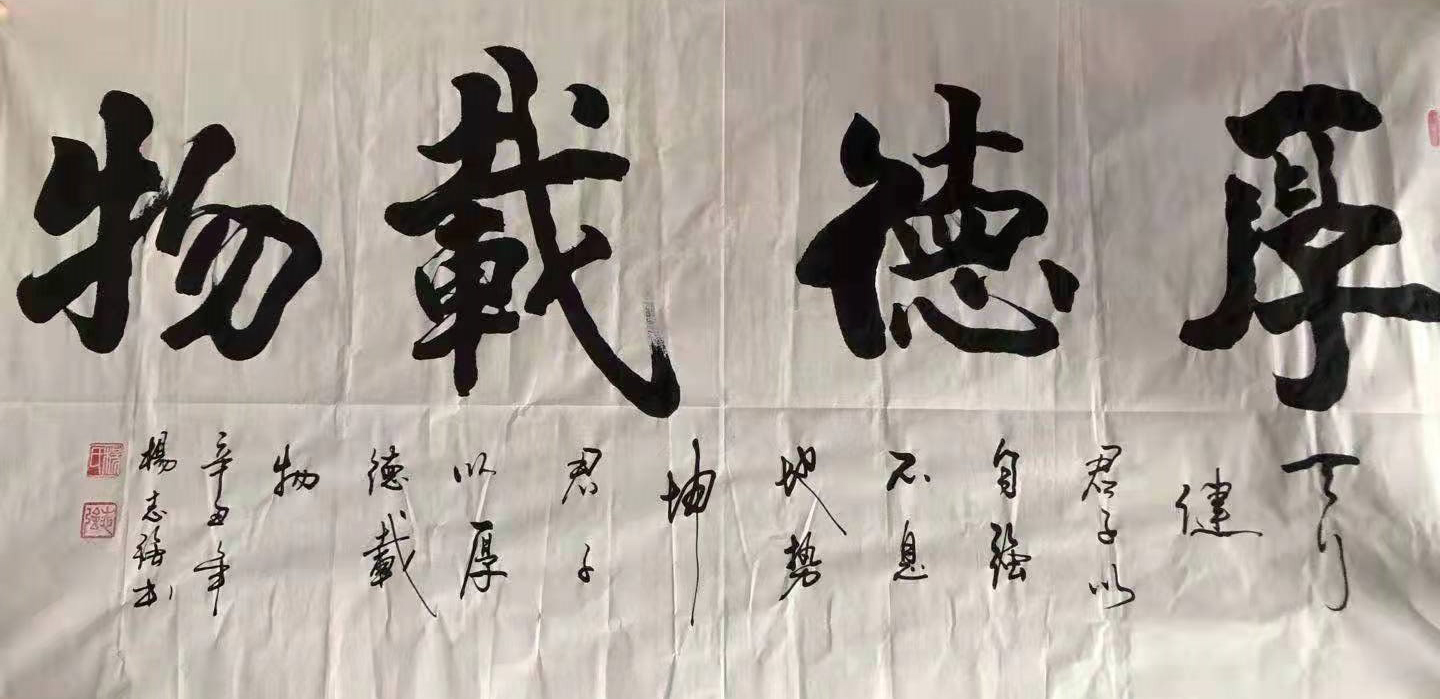 厚德載物
天行
健
君子以
自強
不息
地勢
坤
君子
以厚
德載
物
辛丑年
楊志強书
楊氏
志強